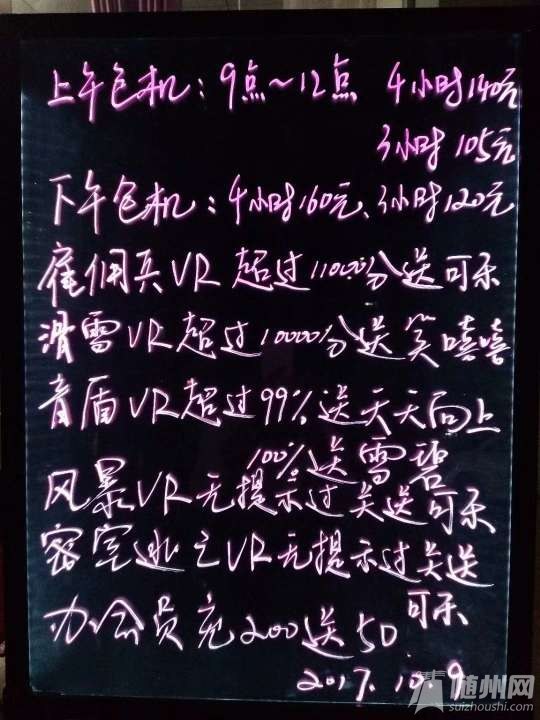 上午包机：9点~12点 4小时140元
3小时105元
下午包机：4小时160元、3小时120元
雇佣兵VR超过11000分送可乐
滑雪VR超过10000分送笑嘻嘻
音盾VR超过99%送天天向上
100%送雪碧
风暴VR无提示过关送可乐
密室逃亡VR无提示过关送
可乐
办会员充200送50
2017.10.9
随州网
suizhoushi.com